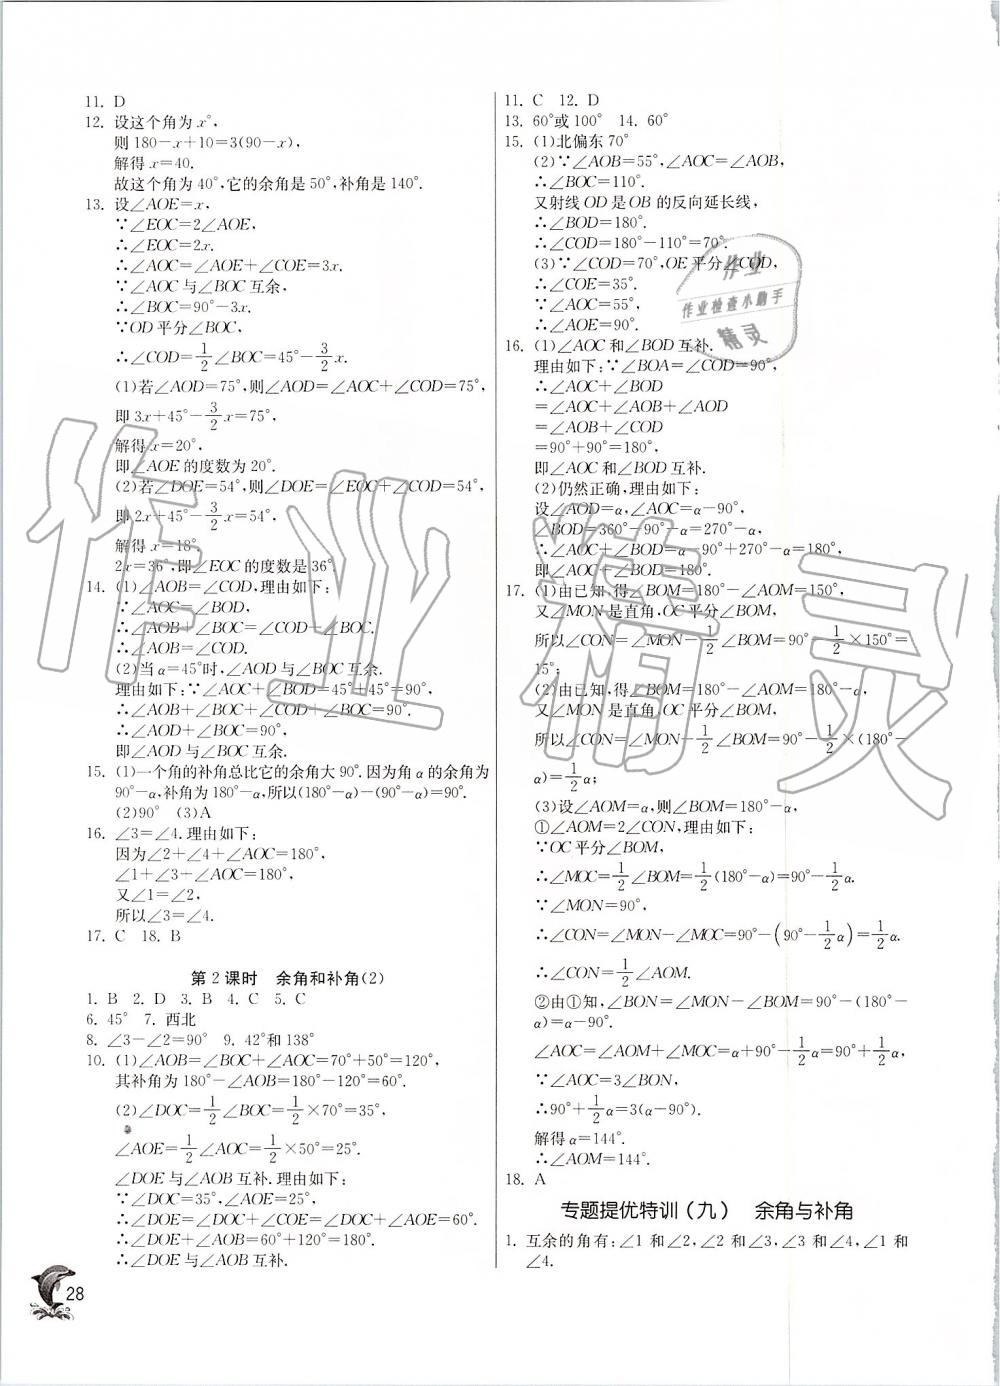 11. D
12. 设这个角为 x°,
则 180-x+10=3(90-x),
解得 x=40.
故这个角为 40°,它的余角是 50°,补角是 140°.
13. 设∠AOE=x,
∵∠EOC=2∠AOE,
∴∠EOC=2x.
∴∠AOC=∠AOE+∠COE=3x.
∵∠AOC 与∠BOC 互余,
∴∠BOC=90°-3x.
∵OD 平分∠BOC,
∴∠COD=1/2∠BOC=45°-3/2x.
(1)若∠AOD=75°,则∠AOD=∠AOC+∠COD=75°,
即 3x+45°-3/2x=75°,
解得 x=20°,
即∠AOE 的度数为 20°.
(2)若∠DOE=54°,则∠DOE=∠EOC+∠COD=54°,
即 2x+45°-3/2x=54°,
解得 x=18°,
2x=36°,即∠EOC 的度数是 36°.
14. (1)∠AOB=∠COD.理由如下:
∵∠AOC=∠BOD,
∴∠AOB+∠BOC=∠COD+∠BOC.
∴∠AOB=∠COD.
(2)当 α=45°时,∠AOD 与∠BOC 互余.
理由如下:∵∠AOC+∠BOD=45°+45°=90°,
∴∠AOB+∠BOC+∠COD+∠BOC=90°.
∴∠AOD+∠BOC=90°,
即∠AOD 与∠BOC 互余.
15. (1)一个角的补角总比它的余角大 90°.因为角 α 的余角为
90°-α,补角为 180°-α,所以(180°-α)-(90°-α)=90°.
(2)90° (3)A
16. ∠3=∠4.理由如下:
因为∠2+∠4+∠AOC=180°,
∠1+∠3+∠AOC=180°,
又∠1=∠2,
所以∠3=∠4.
17. C 18. B
第 2 课时 余角和补角(2)
1. B 2. D 3. B 4. C 5. C
6. 45° 7. 西北
8. ∠3-∠2=90° 9. 42°和 138°
10. (1)∠AOB=∠BOC+∠AOC=70°+50°=120°,
其补角为 180°-∠AOB=180°-120°=60°.
(2)∠DOC=1/2∠BOC=1/2×70°=35°,
∠AOE=1/2∠AOC=1/2×50°=25°.
∠DOE 与∠AOB 互补.理由如下:
∵∠DOC=35°,∠AOE=25°,
∴∠DOE=∠DOC+∠COE=∠DOC+∠AOE=60°.
∴∠DOE+∠AOB=60°+120°=180°.
∴∠DOE 与∠AOB 互补.
28
11. C 12. D
13. 60°或 100° 14. 60°
15. (1)北偏东 70°
(2)∵∠AOB=55°,∠AOC=∠AOB,
∴∠BOC=110°.
又射线 OD 是 OB 的反向延长线,
∴∠BOD=180°.
∴∠COD=180°-110°=70°.
(3)∵∠COD=70°,OE 平分∠COD,
∴∠COE=35°.
∵∠AOC=55°,
∴∠AOE=90°.
16. (1)∠AOC 和∠BOD 互补.
理由如下:∵∠BOA=∠COD=90°,
∴∠AOC+∠BOD
=∠AOC+∠AOB+∠AOD
=∠AOB+∠COD
=90°+90°=180°,
即∠AOC 和∠BOD 互补.
(2)仍然正确,理由如下:
设∠AOD=α,∠AOC=α-90°,
∠BOD=360°-90°-α=270°-α,
∴∠AOC+∠BOD=α-90°+270°-α=180°,
即∠AOC 和∠BOD 互补.
17. (1)由已知,得∠BOM=180°-∠AOM=150°,
又∠MON 是直角,OC 平分∠BOM,
所以∠CON=∠MON-1/2∠BOM=90°-1/2×150°=
15°;
(2)由已知,得∠BOM=180°-∠AOM=180°-α,
又∠MON 是直角,OC 平分∠BOM,
所以∠CON=∠MON-1/2∠BOM=90°-1/2×(180°-
α)=1/2α;
(3)设∠AOM=α,则∠BOM=180°-α,
①∠AOM=2∠CON,理由如下:
∵OC 平分∠BOM,
∴∠MOC=1/2∠BOM=1/2(180°-α)=90°-1/2α.
∵∠MON=90°,
∴∠CON=∠MON-∠MOC=90°-(90°-1/2α)=1/2α.
∴∠CON=1/2∠AOM.
②由①知,∠BON=∠MON-∠BOM=90°-(180°-
α)=α-90°.
∠AOC=∠AOM+∠MOC=α+90°-1/2α=90°+1/2α,
∵∠AOC=3∠BON,
∴90°+1/2α=3(α-90°).
解得 α=144°.
∴∠AOM=144°.
18. A
专题提优特训(九) 余角与补角
1. 互余的角有:∠1 和∠2,∠2 和∠3,∠3 和∠4,∠1 和
∠4.
作业精灵
作业
作业检查小助手
精灵